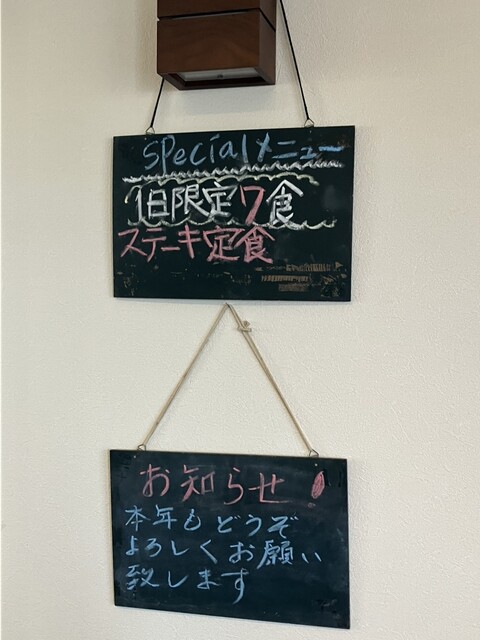 Specialメニュー
1日限定7食
ステーキ定食
お知らせ!
本年もどうぞ
よろしくお願い
致します